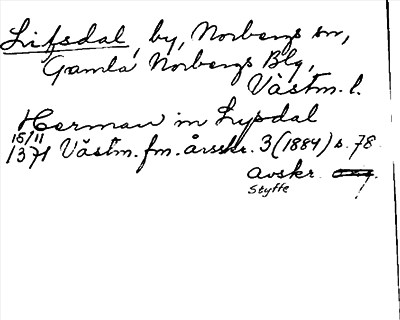 Lifsdal, by, Norbergs sn,
Gamla Norbergs Blg,
Västm. l.
Herman in Lypsdal
15/11
1371 Västm. fm. årsskr. 3 (1884) s. 78.
avskr.
Styffe